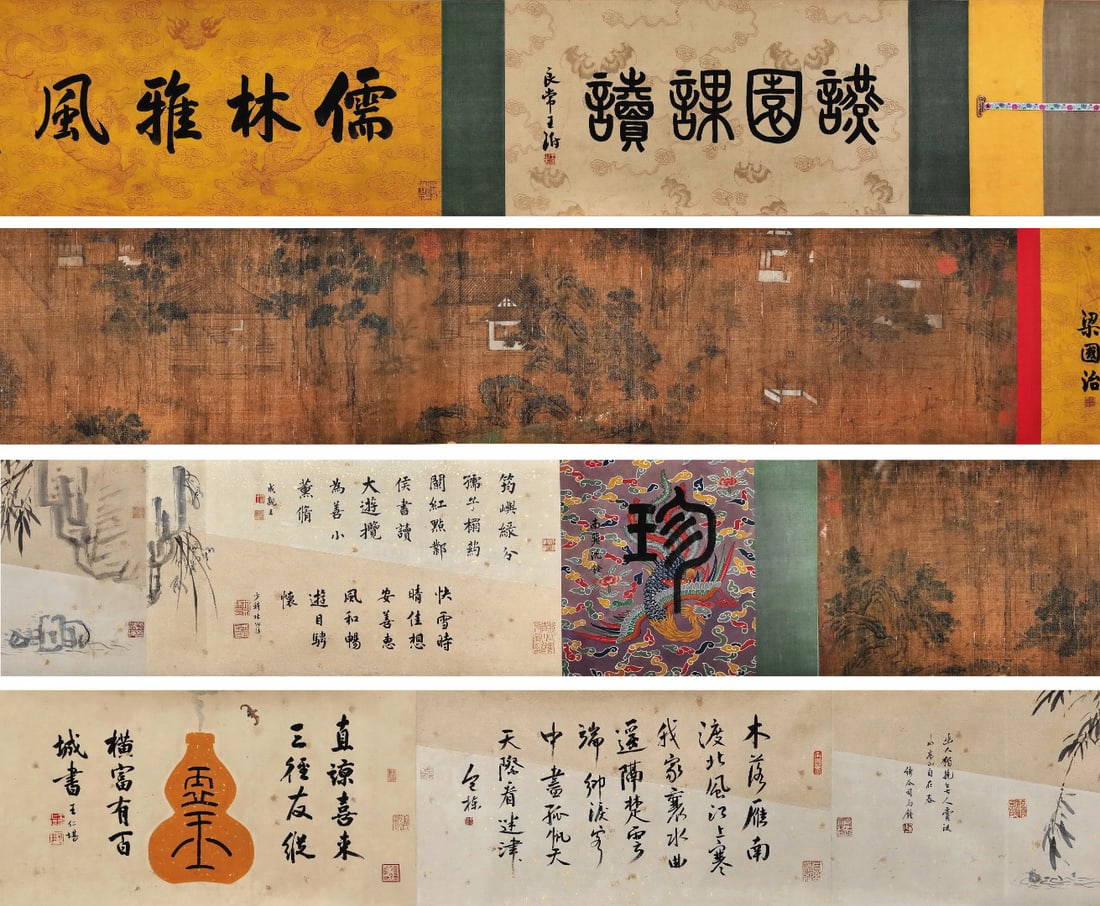 讌園課讀
良常王澍
儒林雅風
梁國治
珍
南蘋沈銓
筠嶼綠分
孺子榻葯
闌紅點鄴
侯書讀
大遊攬
為善小
薰脩
成親王
快雪時
晴佳想
安善惠
風和暢
遊目騁
懷
木落雁南
渡北風江上寒
我家襄水曲
遙隔楚雲
端鄉淚客
中盡孤帆天
天際看迷津
直諒喜來
三徑友縱
橫富有百
城書 王仁堪